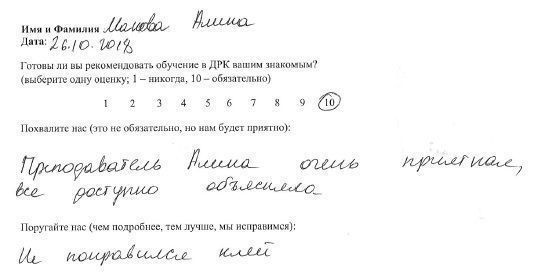 Имя и Фамилия Макова Алина
Дата: 26.10.2018
Готовы ли вы рекомендовать обучение в ДРК вашим знакомым?
(выберите одну оценку; 1 – никогда, 10 – обязательно)
1 2 3 4 5 6 7 8 9 10
Похвалите нас (это не обязательно, но нам будет приятно):
Преподаватель Алина очень приятная,
все доступно объясняла
Поругайте нас (чем подробнее, тем лучше, мы исправимся):
Не понравился клей